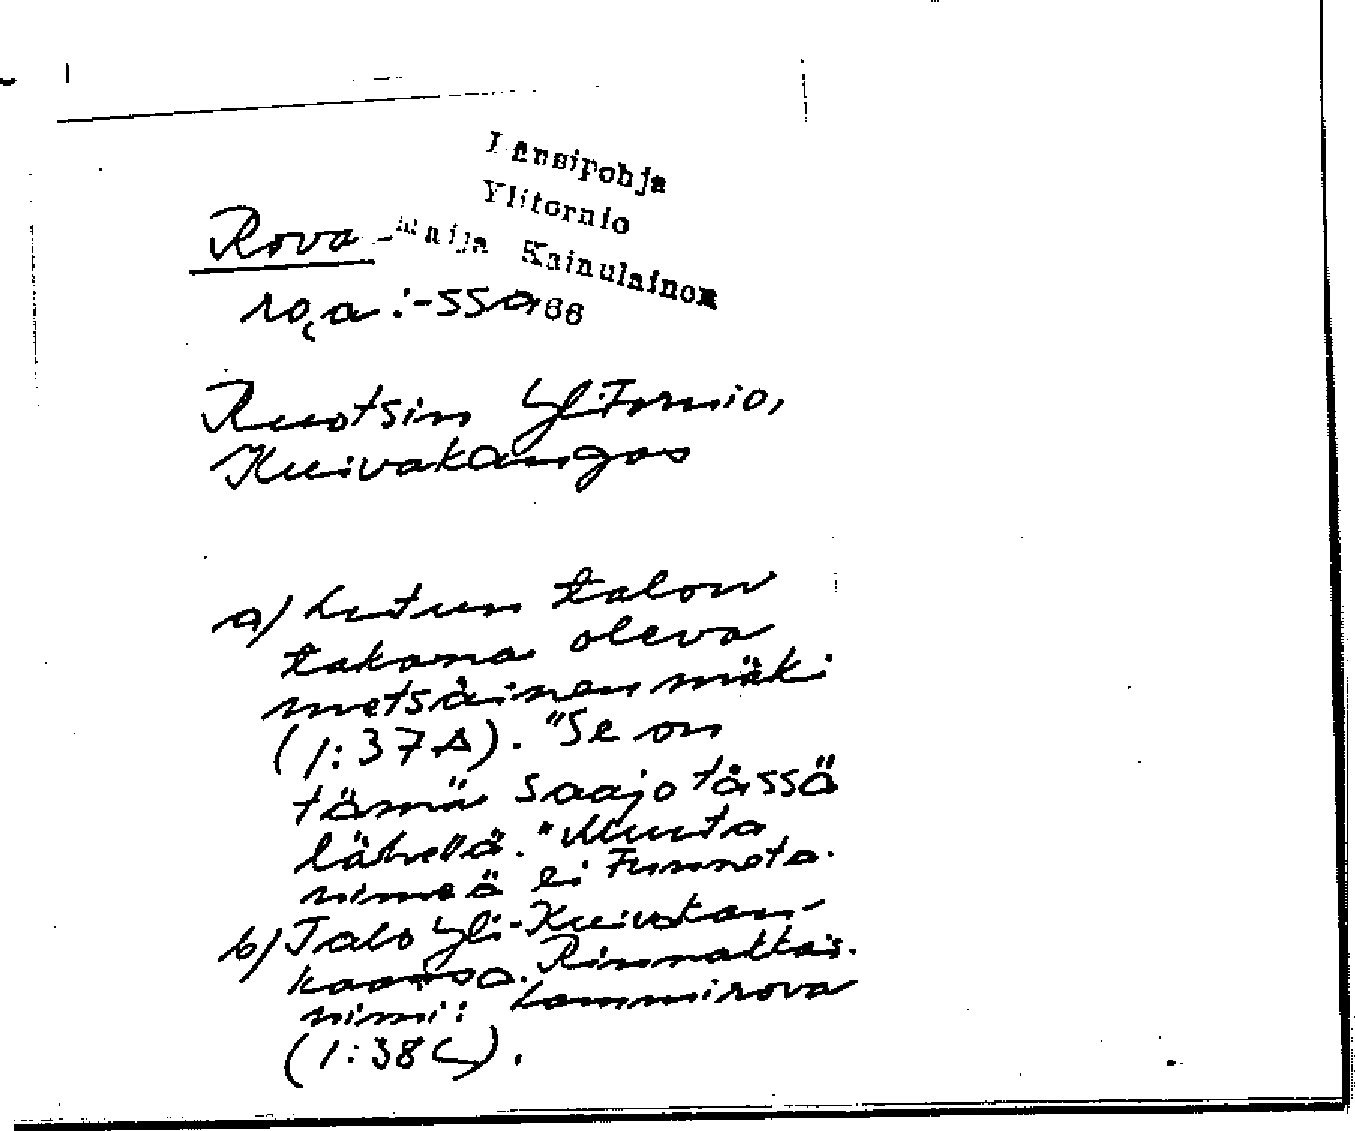 Länsipohja
Ylitornio
Maija Kainulainen
66
Rova
ro̯a :-ssa
Ruotsin Ylitornio,
Kuivakangas
a) Lutun talon
takana oleva
metsäinen mäki
(1:37A). "Se on
tämä saajo tässä
lähellä." Muuta
nimeä ei tunneta.
b) Talo Yli-Kuivakan-
kaassa. Rinnakkais-
nimi: Lammirova
(1:38C).